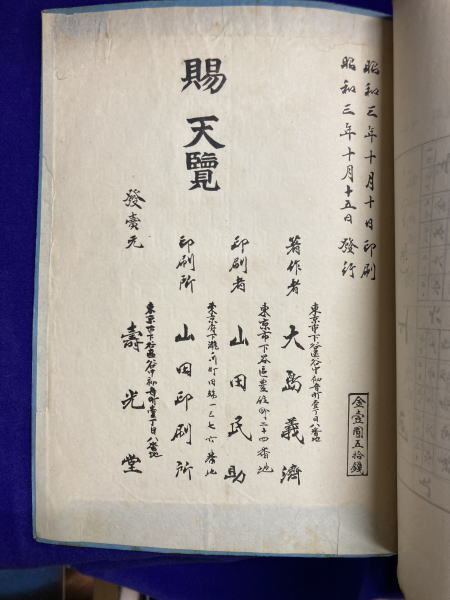 昭和三年十月十日印刷
昭和三年十月十五日發行
金壹圓五拾錢
東京市下谷區谷中初音町壹丁目八番地
著作者 大島義濟
東京市下谷區豊住町三十四番地
印刷者 山田民助
東京府下瀧ノ川町田端一三七六番地
印刷所 山田印刷所
東京市下谷區谷中初音町壹丁目八番地
發賣元 壽光堂
賜天覽